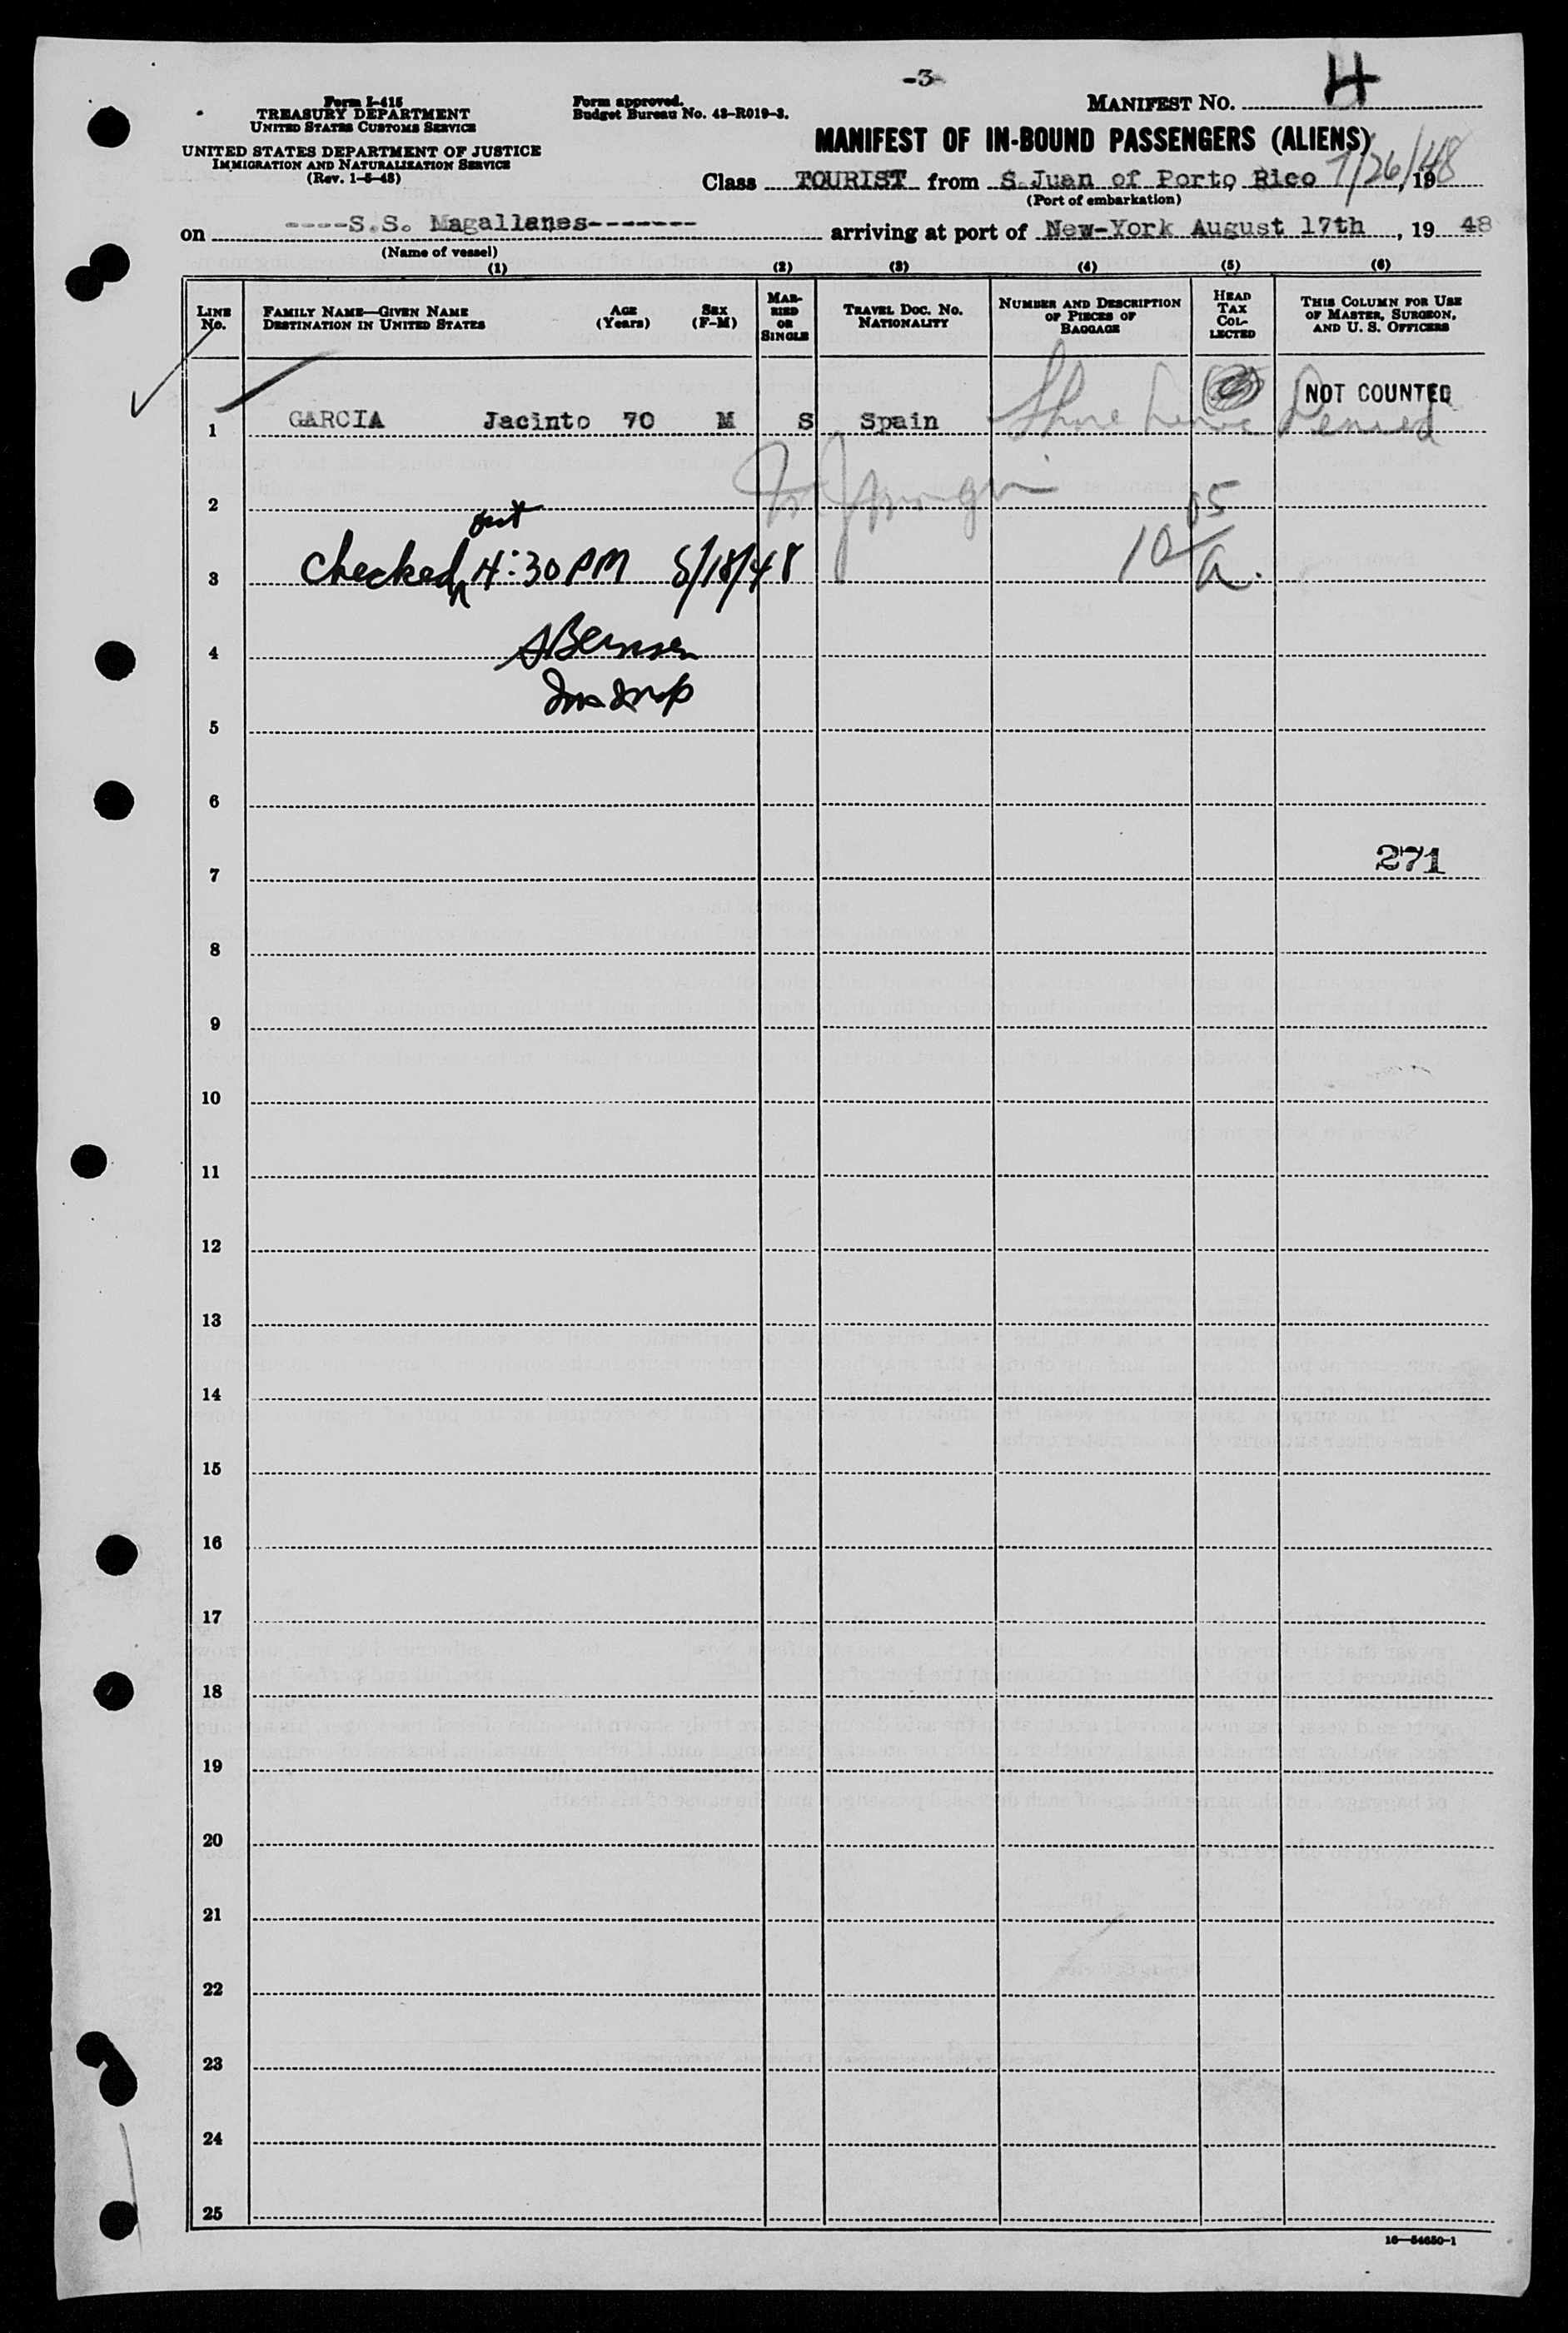 -3-
Form I-415
TREASURY DEPARTMENT
UNITED STATES CUSTOMS SERVICE
UNITED STATES DEPARTMENT OF JUSTICE
IMMIGRATION AND NATURALIZATION SERVICE
(Rev. 1-5-48)
Form approved.
Budget Bureau No. 43-R019-3.
MANIFEST NO. 4
MANIFEST OF IN-BOUND PASSENGERS (ALIENS)
Class TOURIST from S.Juan of Porto Rico 7/26/48, 19
(Port of embarkation)
on ----S.S. Magallanes------- arriving at port of New-York August 17th, 19 48
(Name of vessel)
(1) (2) (3) (4) (5) (6)
LINE NO.
FAMILY NAME—GIVEN NAME
DESTINATION IN UNITED STATES
AGE (Years)
SEX (F-M)
MARRIED OR SINGLE
TRAVEL DOC. NO.
NATIONALITY
NUMBER AND DESCRIPTION OF PIECES OF BAGGAGE
HEAD TAX COLLECTED
THIS COLUMN FOR USE OF MASTER, SURGEON, AND U. S. OFFICERS
NOT COUNTED
1 GARCIA Jacinto 70 M S Spain Shore Leave Denied
2
out
3 checked 4:30 PM 8/18/48 10 05/a.
4
5
6
271
7
8
9
10
11
12
13
14
15
16
17
18
19
20
21
22
23
24
25
16—54650-1